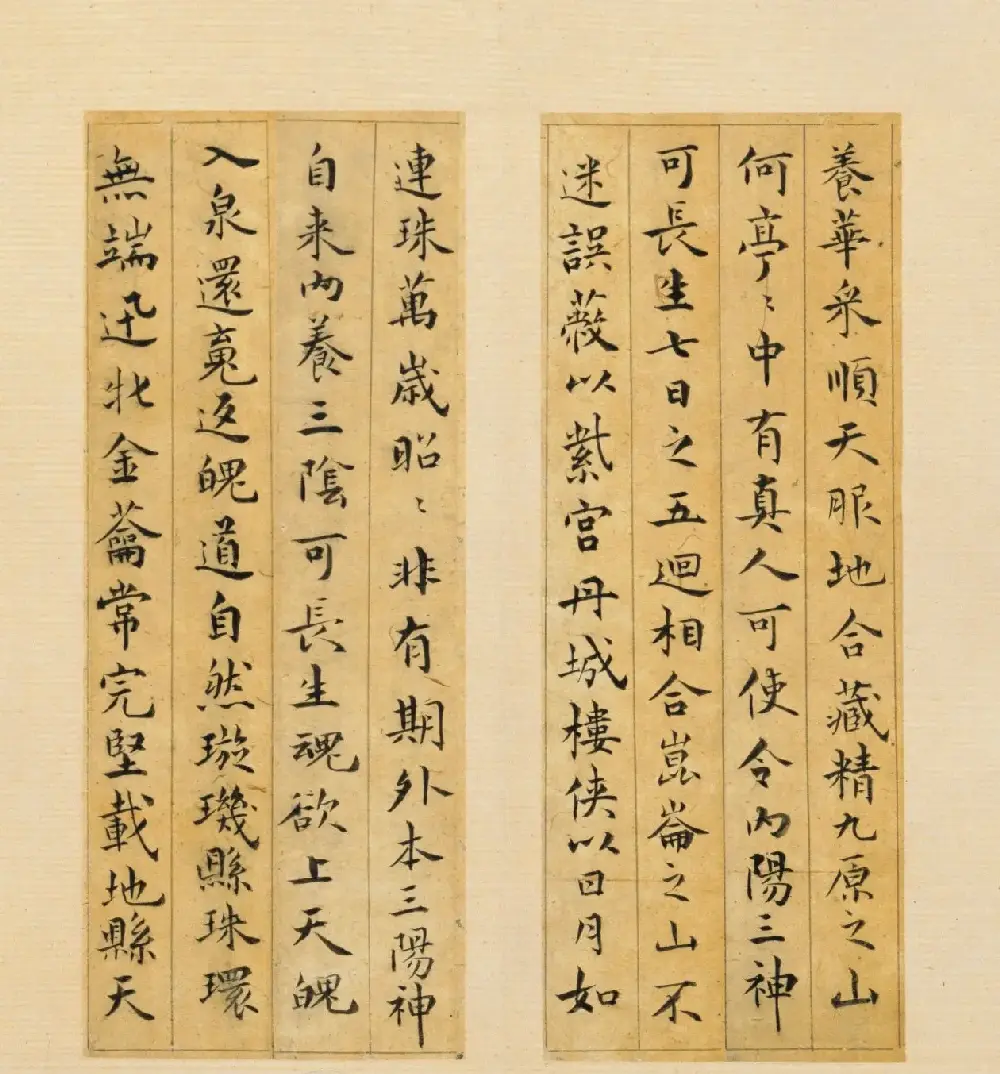 養華采順天服地合藏精九原之山
何亭〻中有真人可使令内陽三神
可長生七日之五迴相合崑崙之山不
迷誤蔽以紫宮丹城樓侠以日月如
連珠萬歲昭〻非有期外本三陽神
自来内養三陰可長生魂欲上天魄
入泉還魂返魄道自然璇璣縣珠環
無端迅牝金蘥常完堅載地縣天